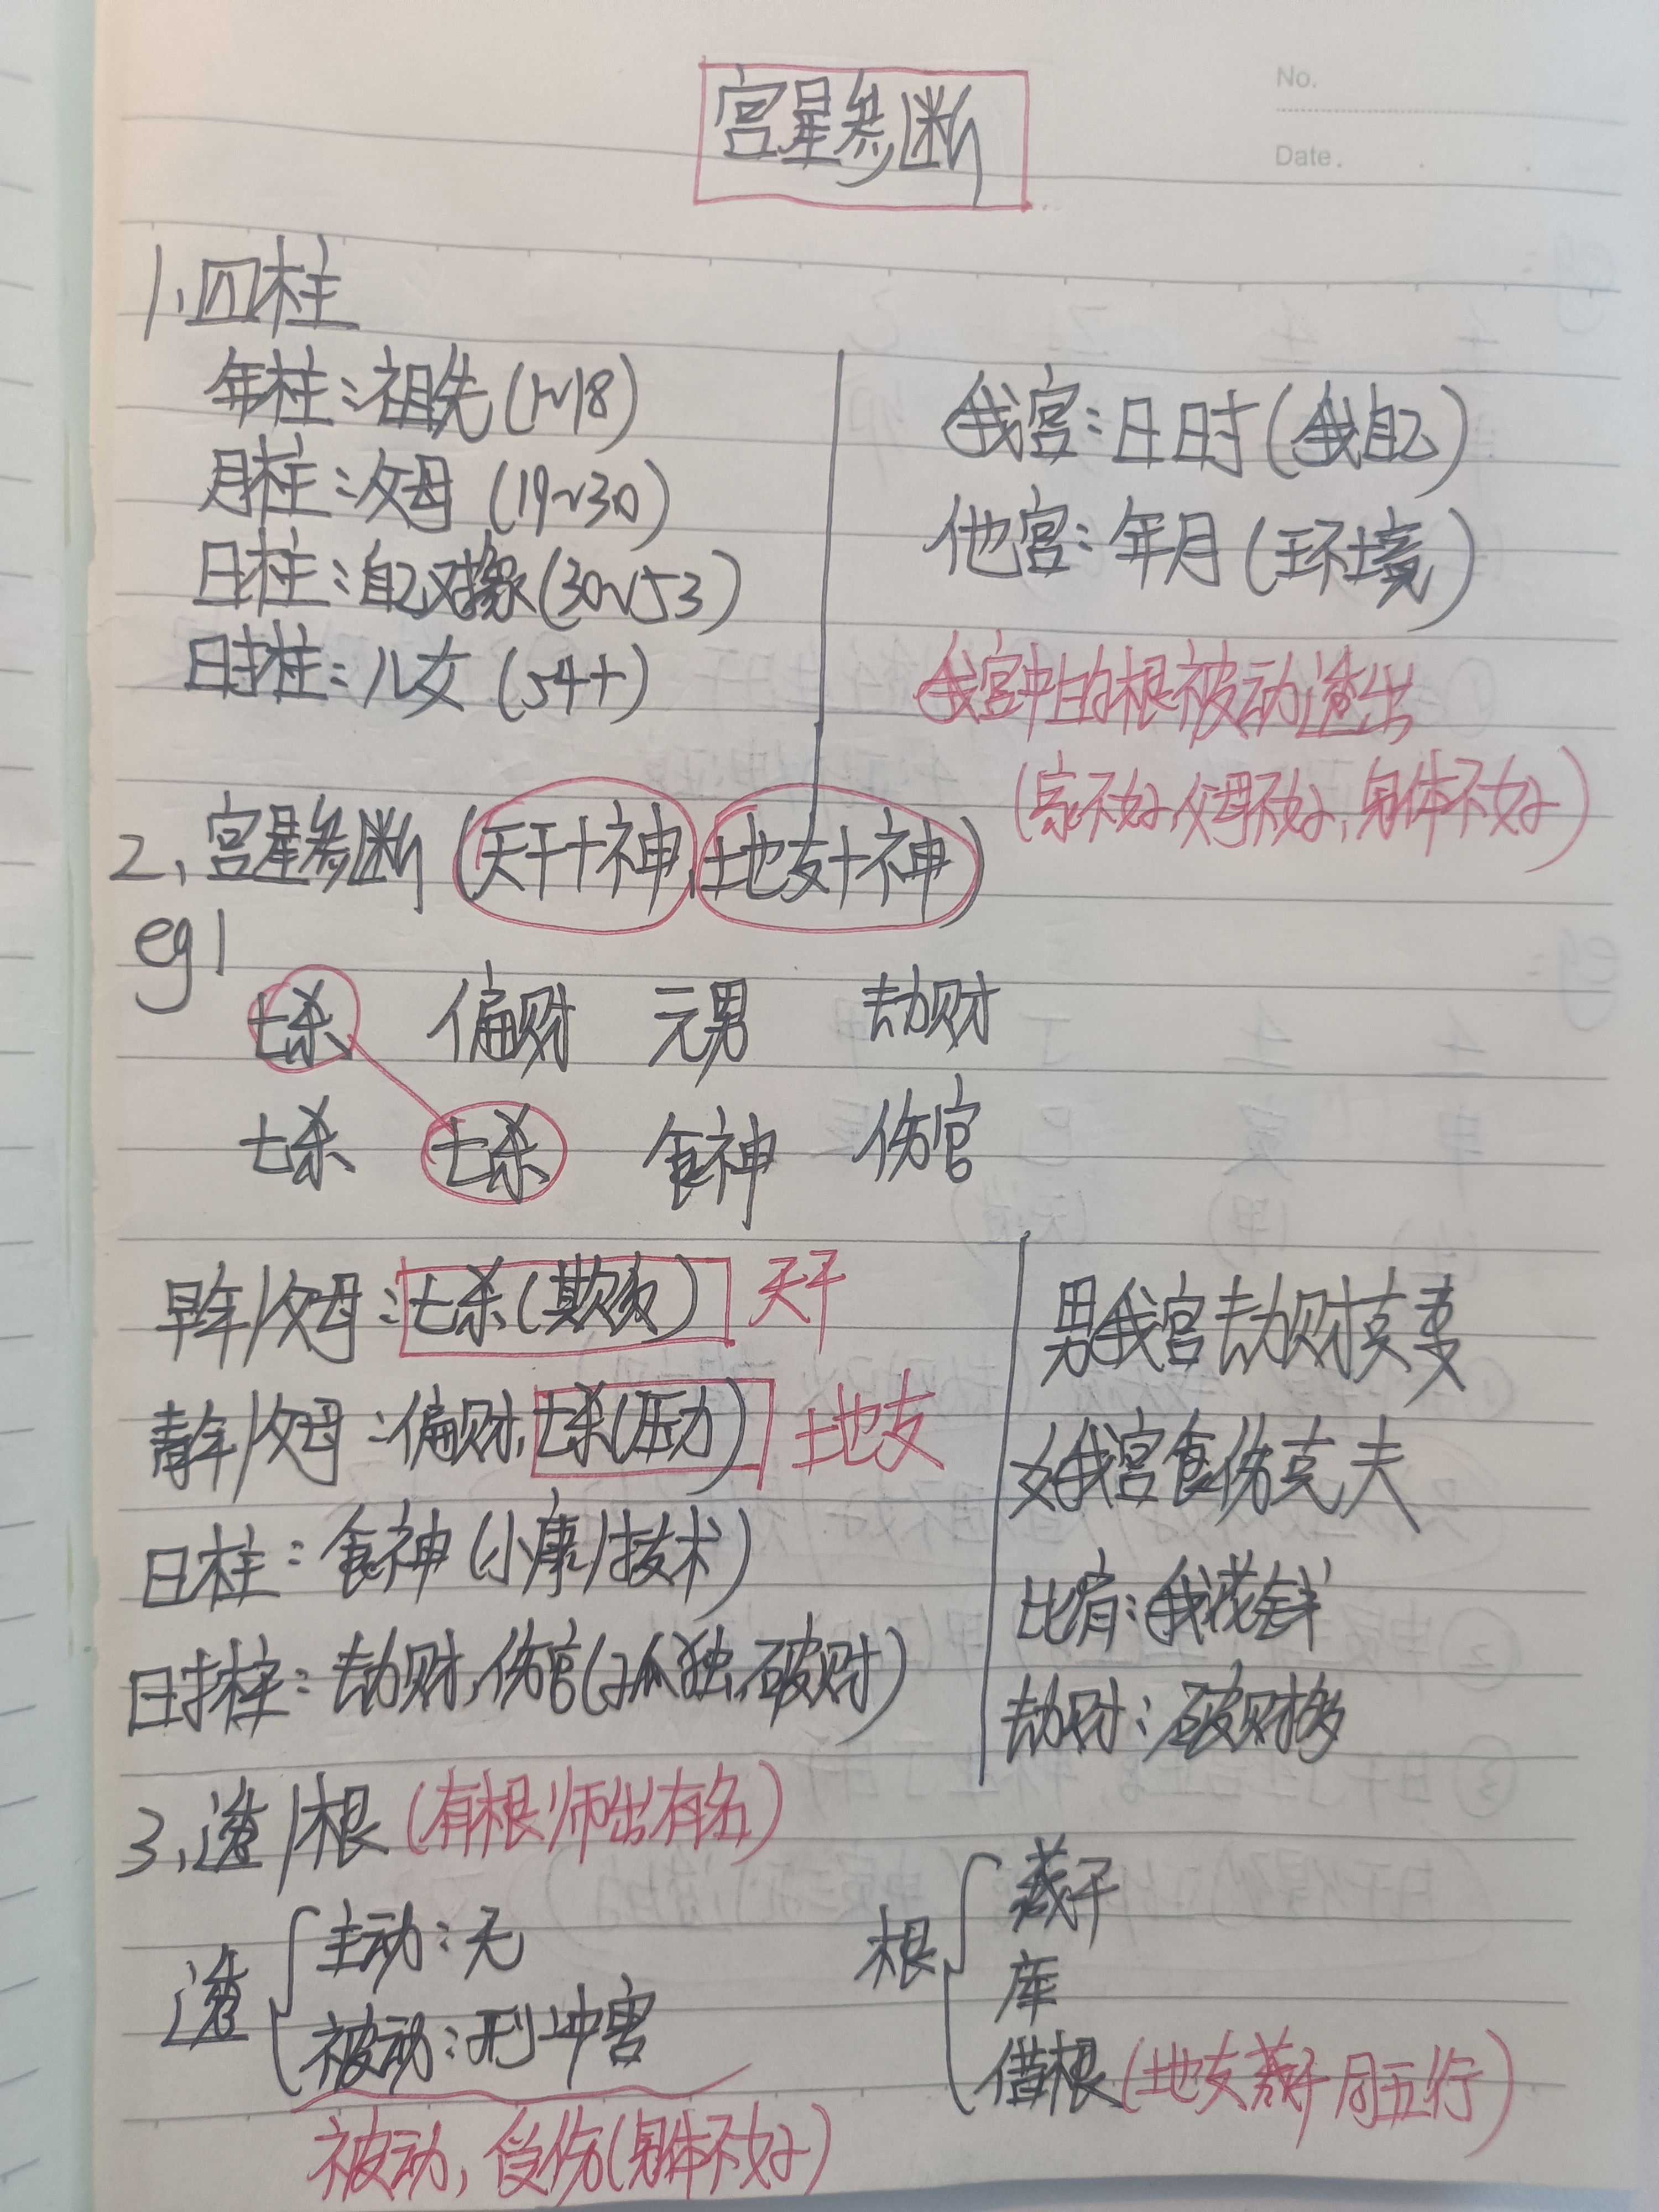 No.
Date.
宫星参断
1、四柱
年柱：祖先(1~18)
月柱：父母 (19~30)
日柱：自己对象(30~53)
时柱：儿女 (54+)
我宫：日时(我自己)
他宫：年月(环境)
我宫中的根被动透出
(家不好,父母不好,身体不好)
2、宫星参断 (天干十神,地支十神)
eg1
七杀 偏财 元男 劫财
七杀 七杀 食神 伤官
早年/父母：七杀(欺负) 天干
青年/父母：偏财,七杀(压力) 地支
日柱：食神(小康/技术)
时柱：劫财,伤官(孤独,破财)
男我宫劫财克妻
女我宫食伤克夫
比肩：我花钱
劫财：破财多
3、透/根(有根/师出有名)
透 主动：无
被动：刑冲害
被动,受伤(身体不好)
根 藏干
库
借根(地支藏干同五行)